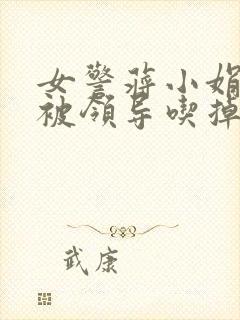 女警蒋小娟
被领导喫掉
武康